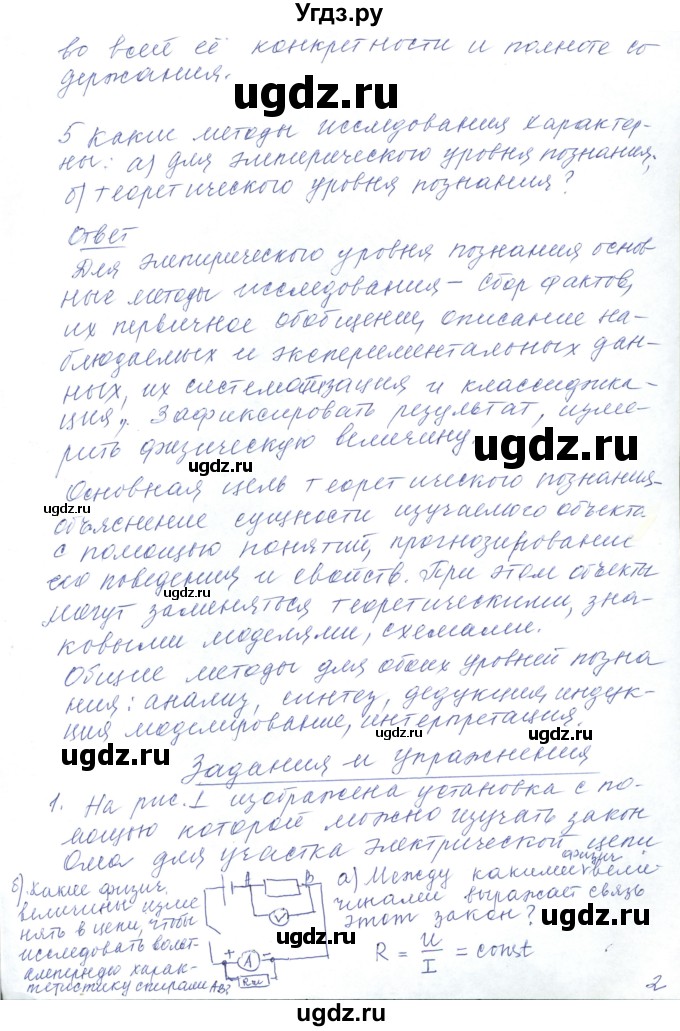 Угдз.ру
во всей её конкретности и полноте со
держания.
ugdz.ru
ugdz.ru
5 Какие методы исследования характер-
ны: а) для эмпирического уровня познания;
б) теоретического уровня познания?
ugdz.ru
Ответ
Для эмпирического уровня познания основ-
ные методы исследования – сбор фактов,
их первичное обобщение, описание на-
блюдаемых и экспериментальных дан-
ных, их систематизация и классифика-
ция. Зафиксировать результат, изме-
рить физическую величину.
ugdz.ru
ugdz.ru
ugdz.ru
ugdz.ru
Основная цель теоретического познания–
объяснение сущности изучаемого объекта
с помощью понятий, прогнозирование
его поведения и свойств. При этом объекты
могут заменяться теоретическими, зна-
ковыми моделями, схемами.
ugdz.ru
ugdz.ru
ugdz.ru
Общие методы для обоих уровней позна
ния: анализ, синтез, дедукция, индук-
ция моделирование, интерпретация.
ugdz.ru
ugdz.ru
ugdz.ru
Задания и упражнения
1. На рис. I изображена установка с по-
мощью которой можно изучать закон
Ома для участка электрической цепи
ugdz.ru
ugdz.ru
а) Между какими физич. вели-
чинами выражает связь
этот закон?
R = U/I = const
б) Какие физич.
величины изме
нять в цепи, чтобы
исследовать вольт-
амперную харак-
теристику спирали АВ?
A B
V
+ A −
ugdz.ru
ugdz.ru
2